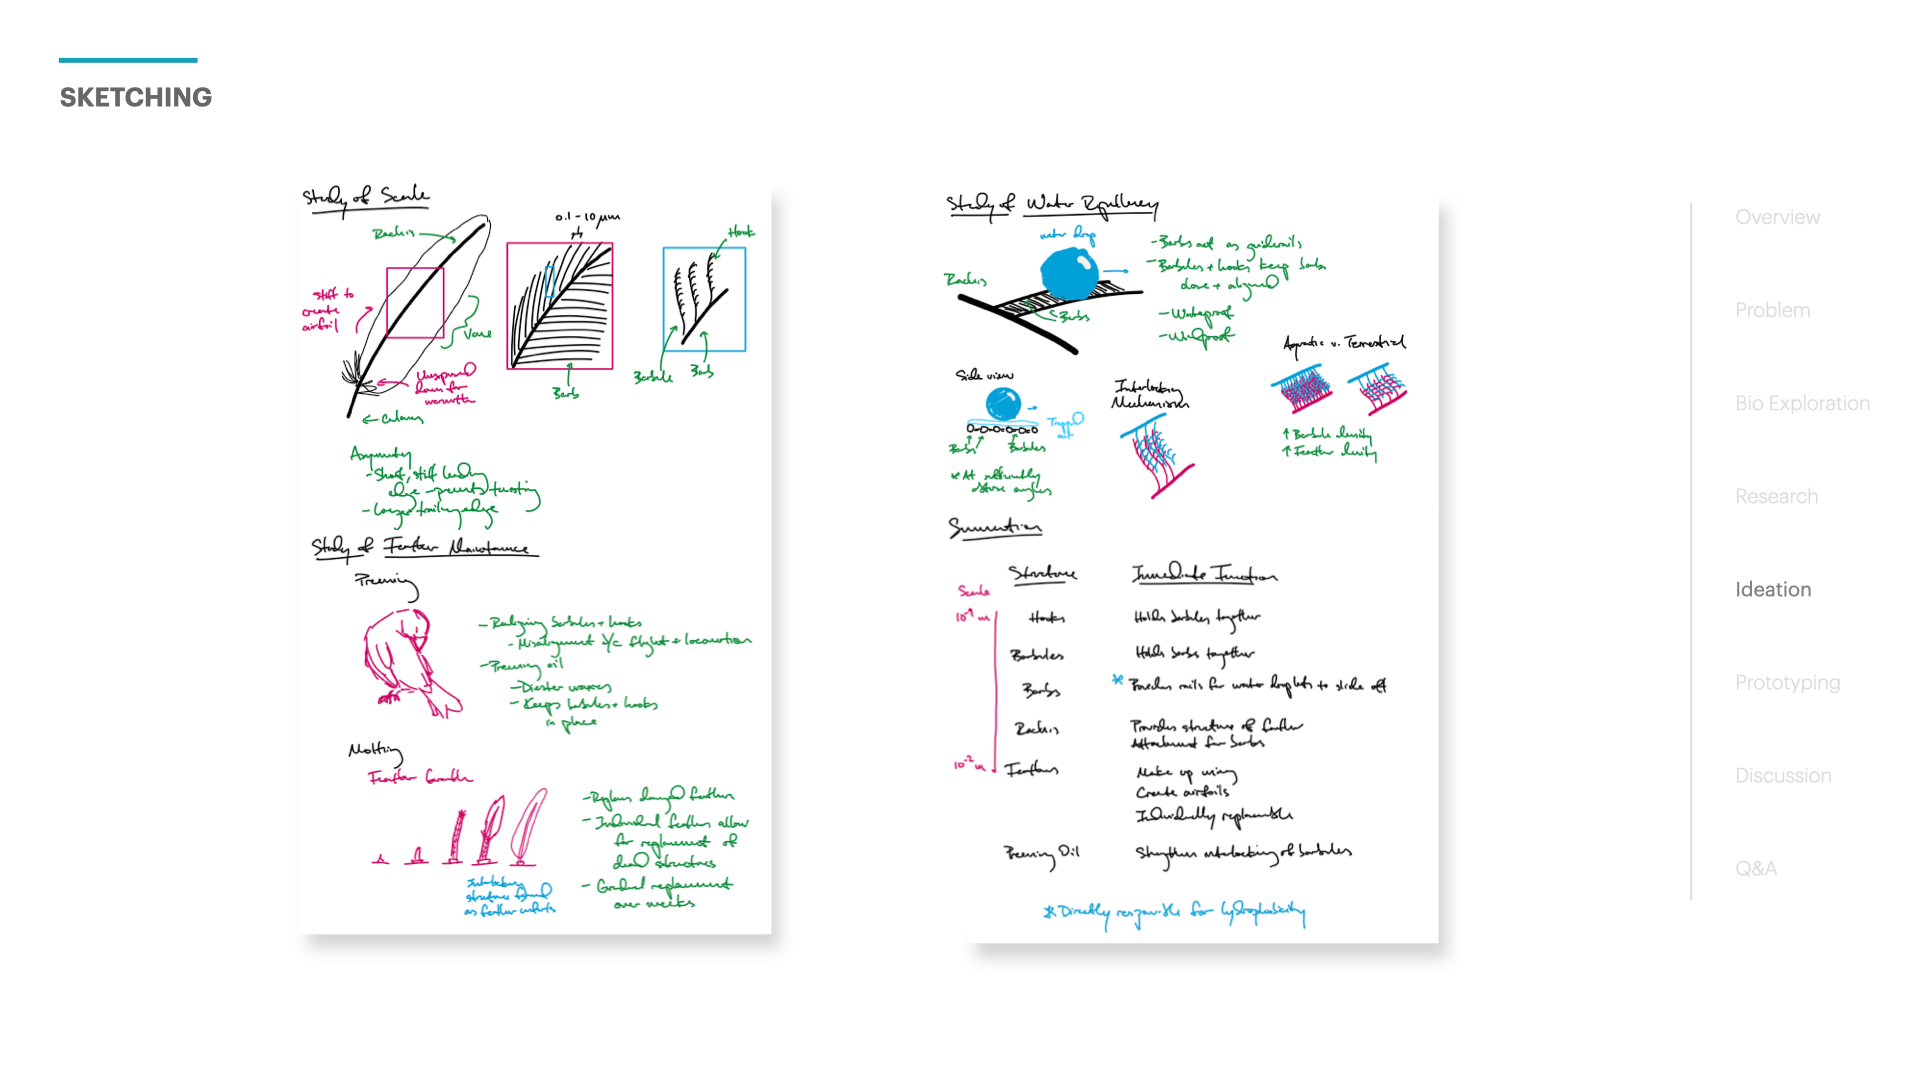 SKETCHING
Study of Scale
Rachis
0.1-10 μm
Hook
stiff to
create
airfoil
Vane
down for
warmth
← Calamus
Barb
Barbule
Barb
Asymmetry
- Short, stiff leading
edge - prevents twisting
- Longer trailing edge
Study of Feather Maintenance
Preening
- Realigning barbules + hooks
- Misalignment d/c flight + locomotion
- Preening oil
- Diester waxes
- Keeps barbules + hooks
in place
Molting
Feather Growth
- Replaces damaged feathers
- Individual feathers allow
for replacement of
dead structures
- Gradual replacement
over weeks
Interlocking
structure
as feather
Study of Water Repellency
water drop
Rachis
Barbs
- Barbs act as guiderails
- Barbules + hooks keep barbs
close + aligned
- Waterproof
- Windproof
Side view
Trapped
air
Barbs
Barbules
* At sufficiently
obtuse angles
Interlocking
Mechanism
Aquatic v. Terrestrial
↑ Barbule density
↑ Feather density
Summation
Scale
Structure
Immediate Function
10⁻⁹ m
Hooks
Holds barbules together
Barbules
Holds barbs together
Barbs
* Provides rails for water droplets to slide off
Rachis
Provides structure of feather
Attachment for barbs
10⁻² m
Feathers
Make up wing
Create airfoils
Individually replaceable
Preening Oil
Strengthen interlocking of barbules
* Directly responsible for hydrophobicity
Overview
Problem
Bio Exploration
Research
Ideation
Prototyping
Discussion
Q&A